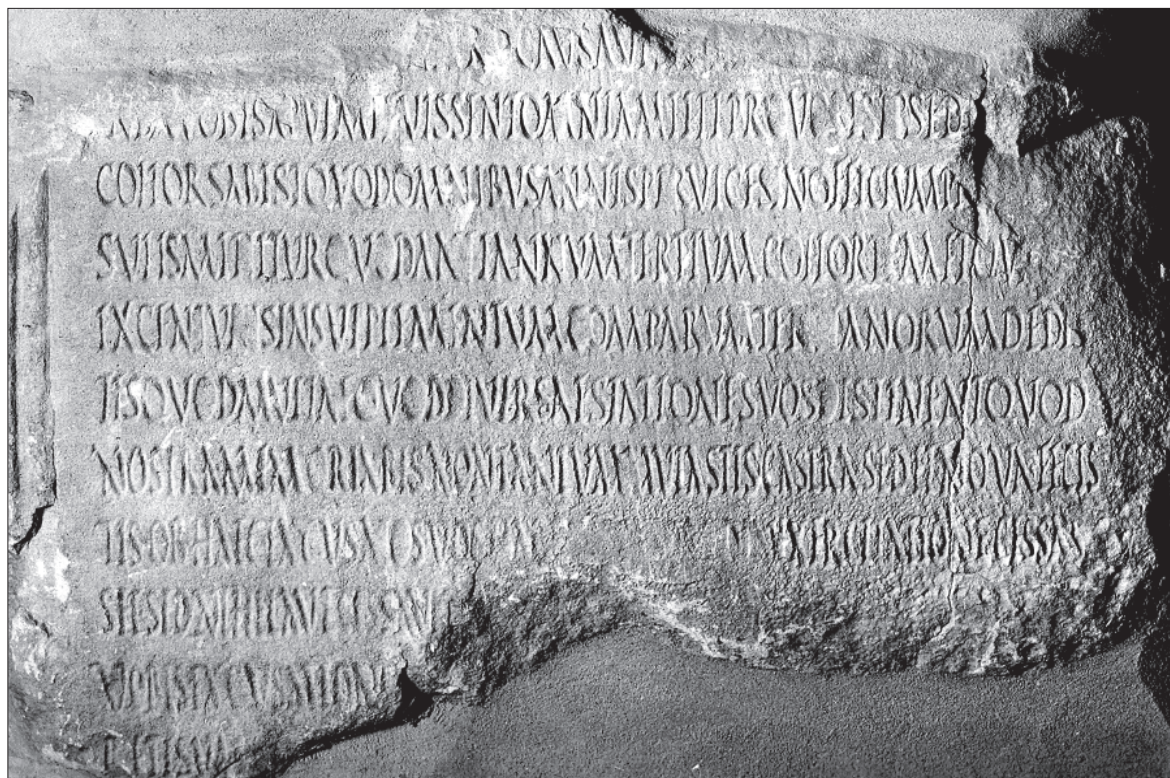 CAVSA
VOBIS APVT ME FVISSENT OMNIA MIHI PRO VOBIS IPSE DI
COHORS ABEST QVOD OMNIBVS ANNIS PER VICES IN OFFICIVM PR
SVLIS MITTITVR QVOD ANTE ANNVM TERTIVM COHORTEM ET QV
EX CENTVRIS IN SVPPLEMENTVM COMPARVM TERTIANORVM DEDIS
TIS QVOD MVLTAE QVOD DIVERSAE STATIONES VOS DISTINENT QVOD
NOSTRA MEMORIA BIS NON TANTVM MVTASTIS CASTRA SED ET NOVA FECIS
TIS OB HAEC EXCVSATOS VOS EXERCITATIO CESSAS
SET SED NIHIL AVT
EXCVSATION